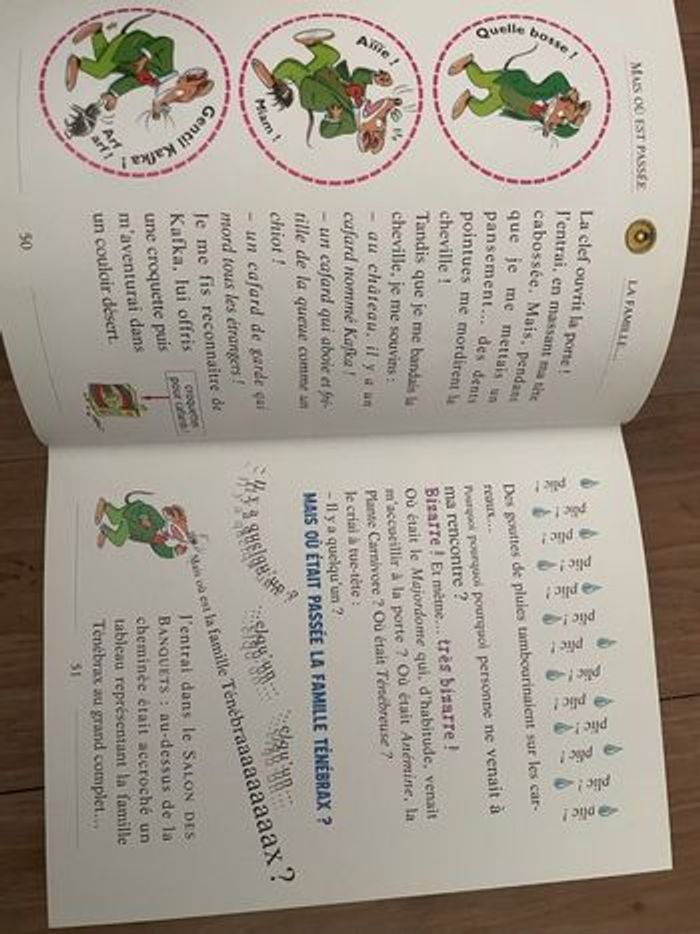 MAIS OÙ EST PASSÉE
LA FAMILLE...
Quelle bosse !
Aïïïe !
Miam !
Gentil Kafka !
Arf
arf !
La clef ouvrit la porte !
J'entrai, en massant ma tête
cabossée. Mais, pendant
que je me mettais un
pansement... des dents
pointues me mordirent la
cheville !
Tandis que je me bandais la
cheville, je me souvins :
– au château, il y a un
cafard nommé Kafka !
– un cafard qui aboie et fré-
tille de la queue comme un
chiot !
– un cafard de garde qui
mord tous les étrangers !
Je me fis reconnaître de
Kafka, lui offris
une croquette puis
m'aventurai dans
un couloir désert.
croquettes
pour cafard !
50
plic !
plic !
plic !
plic !
plic !
plic !
plic !
plic !
plic !
plic !
plic !
plic !
plic !
Des gouttes de pluies tambourinaient sur les car-
reaux...
Pourquoi pourquoi pourquoi personne ne venait à
ma rencontre ?
Bizarre ! Et même... très bizarre !
Où était le Majordome qui, d'habitude, venait
m'accueillir à la porte ? Où était Anémine, la
Plante Carnivore ? Où était Ténébreuse ?
Je criai à tue-tête :
– Il y a quelqu'un ?
MAIS OÙ ÉTAIT PASSÉE LA FAMILLE TÉNÉBRAX ?
– Il y a quelqu'un ?
...elqu'un...
...elqu'un...
Mais où est la famille Ténébraaaaaaaaax ?
J'entrai dans le SALON DES
BANQUETS : au-dessus de la
cheminée était accroché un
tableau représentant la famille
Ténébrax au grand complet...
51